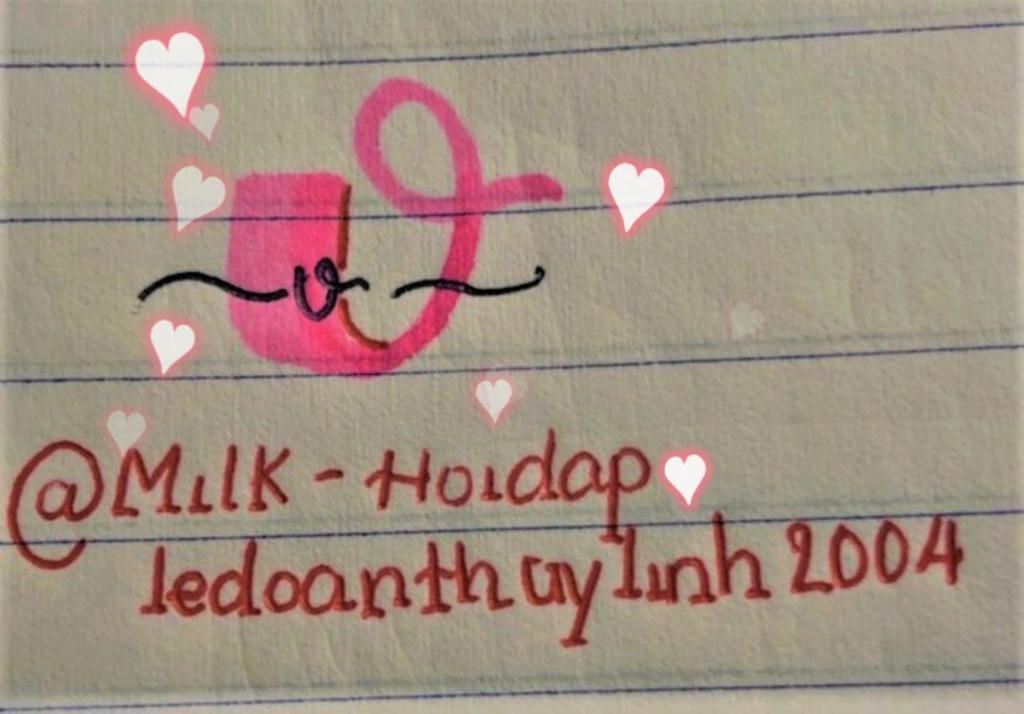 v
@Milk - Hoidap
ledoanthuylinh2004